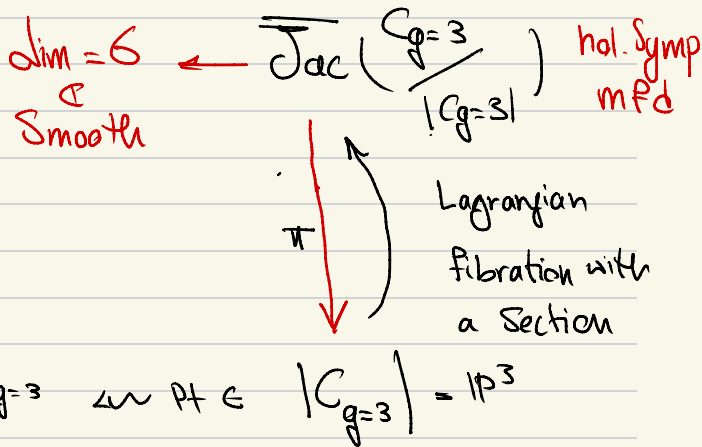 dim = 6 ← \overline{Jac} ( C_{g=3} / |C_{g=3}| ) hol. Symp
mfd
&
Smooth
π
Lagrangian
fibration with
a Section
g=3 ⇝ pt ∈ |C_{g=3}| = IP^3